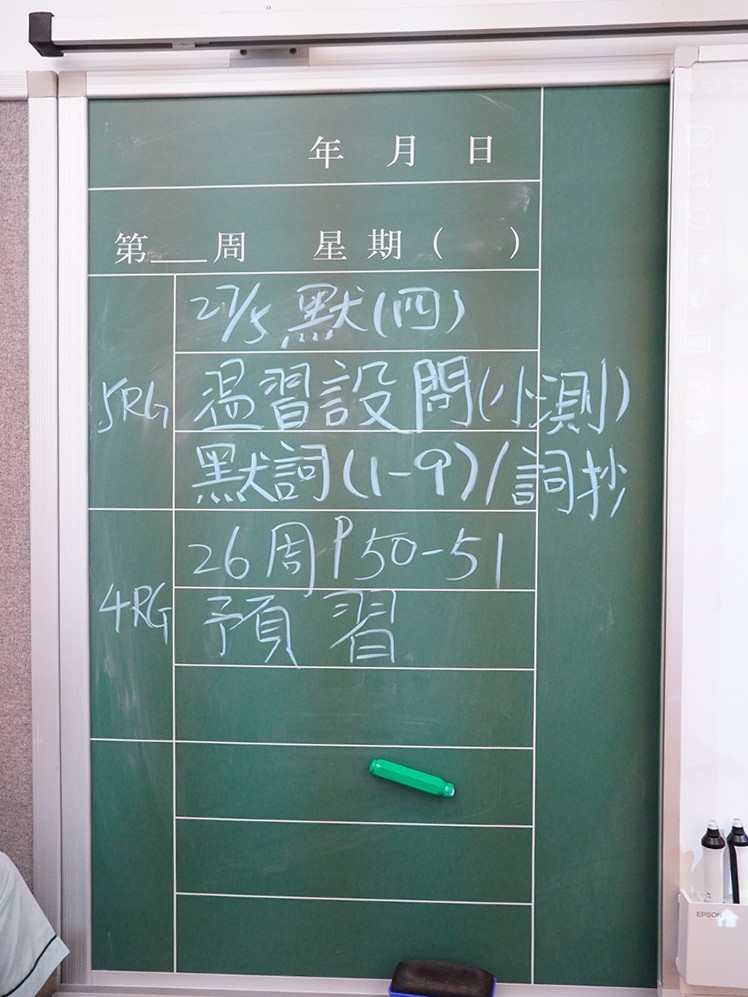 年 月 日
第___周 星期( )
27/5 默(四)
5RG 温習設問(小測)
默詞(1-9)/詞抄
26周P50-51
4RG 預習
EPSON